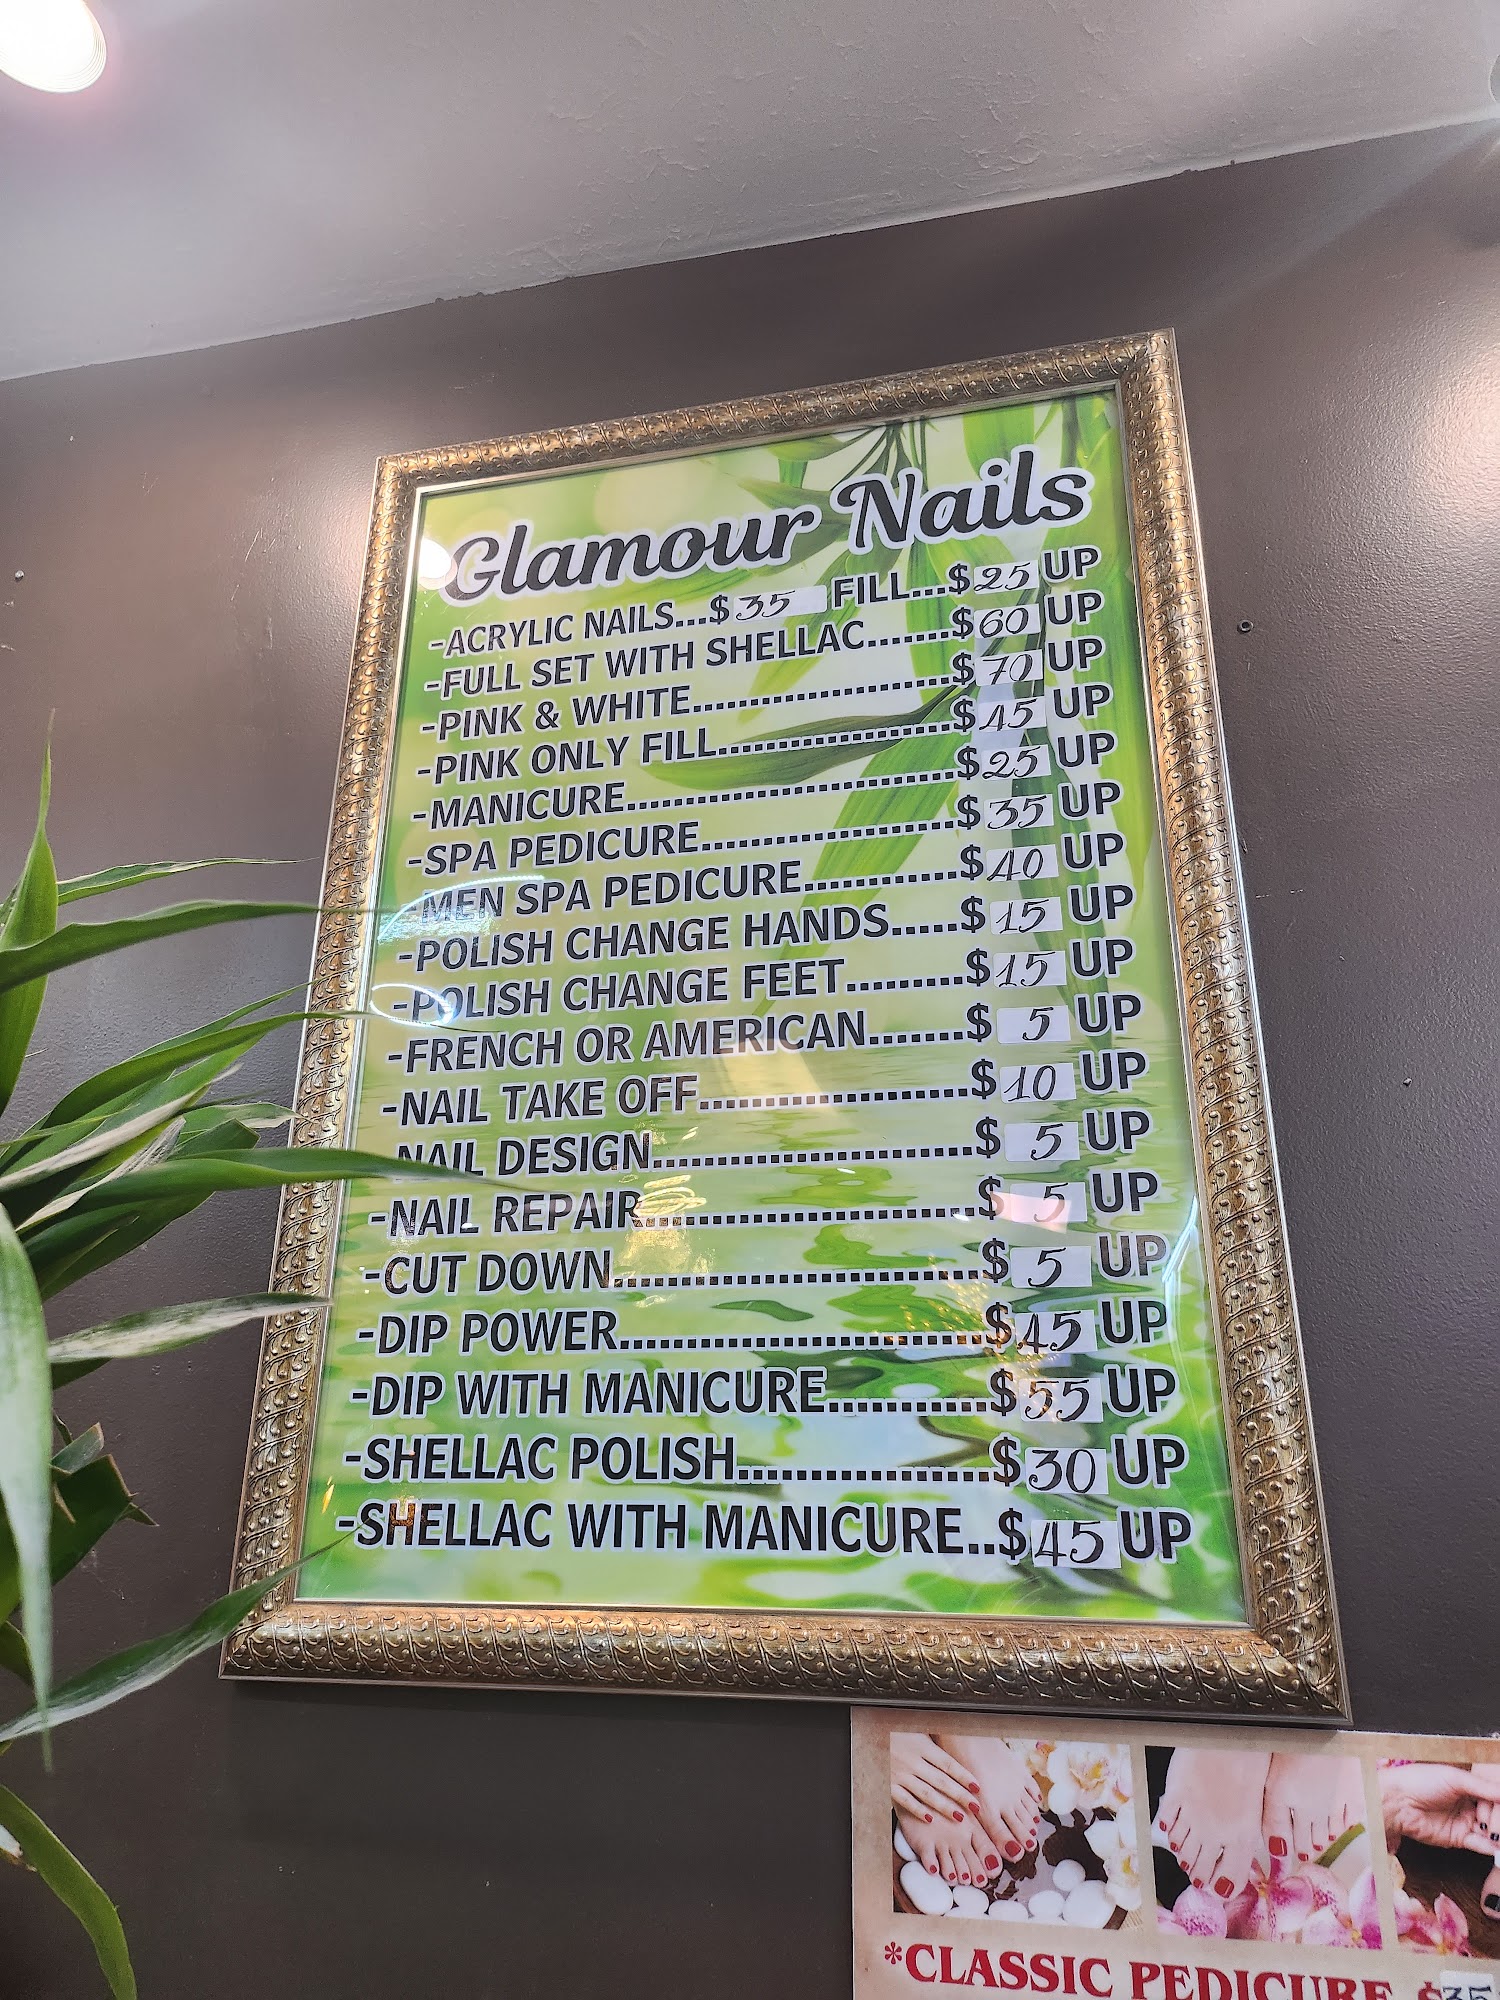 Glamour Nails
-ACRYLIC NAILS...$35 FILL...$25 UP
-FULL SET WITH SHELLAC.......$60 UP
-PINK & WHITE......................$70 UP
-PINK ONLY FILL....................$45 UP
-MANICURE............................$25 UP
-SPA PEDICURE.....................$35 UP
-MEN SPA PEDICURE............$40 UP
-POLISH CHANGE HANDS.....$15 UP
-POLISH CHANGE FEET.........$15 UP
-FRENCH OR AMERICAN.......$ 5 UP
-NAIL TAKE OFF.....................$10 UP
-NAIL DESIGN.........................$ 5 UP
-NAIL REPAIR..........................$ 5 UP
-CUT DOWN............................$ 5 UP
-DIP POWER............................$45 UP
-DIP WITH MANICURE............$55 UP
-SHELLAC POLISH...................$30 UP
-SHELLAC WITH MANICURE..$45 UP
*CLASSIC PEDICURE $35